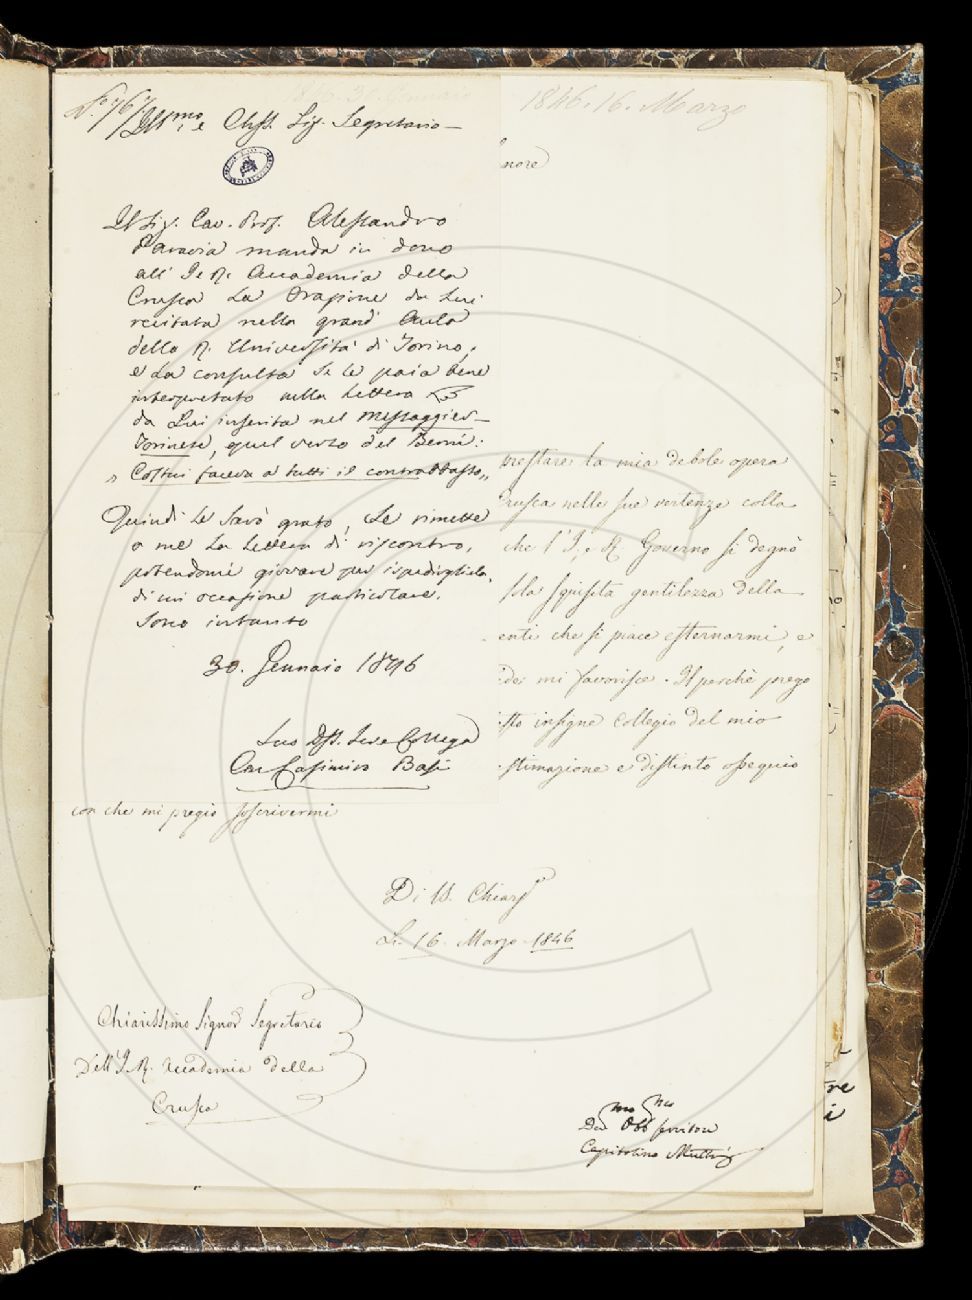 1846. 30. Gennaio
N.° 767
Ill.mo, e Chiss. Sig. Segretario
Il Sig. Cav. Prof. Alessandro
Paravia manda in dono
all' I. e R. Accademia della
Crusca la Orazione da Lui
recitata nella grand' Aula
della R. Università di Torino,
e La consulta se le paia bene
interpretato nella Lettera
da Lui inserita nel Messaggier
Torinese, quel verso del Berni:
" Costui faceva a tutti il contrabbasso "
Quindi le sarò grato, se rimette
a me la Lettera di riscontro,
potendomi giovare per ispedirgliela,
di un occasione particolare.
Sono intanto
30. Gennaio 1846
Suo Dev. Collega
Cav Casimiro Basi
1846. 16. Marzo
nore
prestare la mia debole opera
Crusca nelle sue vertenze colla
che l'I. e R. Governo si degnò
sola squisita gentilezza della
enti che si piace esternarmi, e
mi favorisce. Il perchè prego
sto insigne Collegio del mio
stimazione e distinto ossequio
con che mi pregio soscrivermi
Di V. S. Chiar.
Li 16. Marzo 1846
Chiarissimo Signor Segretario
Dell' I. R. Accademia della
Crusca
Dev.mo Obb.mo servitore
Capitolino Mutti
tre
i